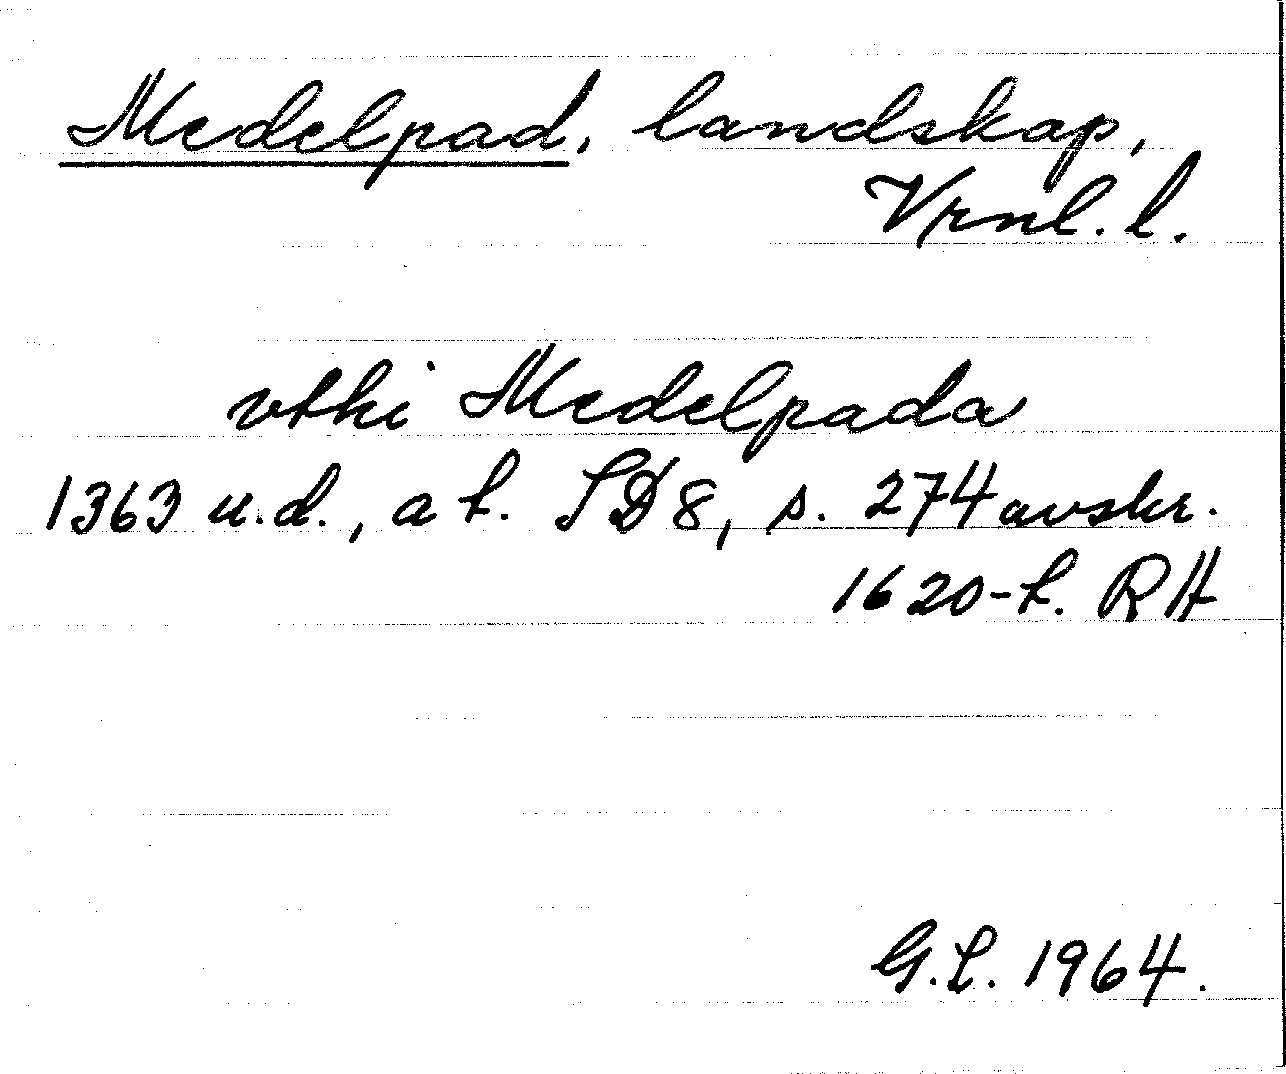 Medelpad, landskap,
Vrnl. l.
vthi Medelpada
1363 u.d., a t. SD 8, s. 274 avskr.
1620-t. RA
G.L. 1964.